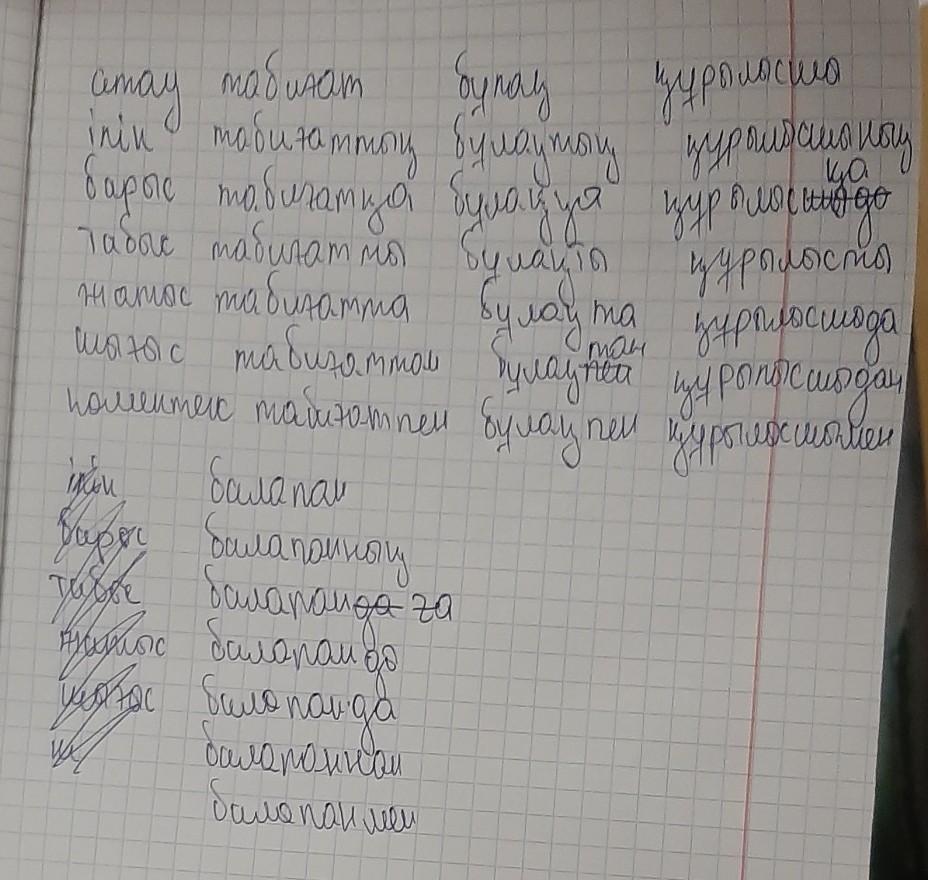 атау табиғат бұлақ құрылысшы
ілік табиғаттың бұлақтың құрылысшының
барыс табиғатқа бұлаққа құрылысшыға
табыс табиғатты бұлақты құрылысты
жатыс табиғатта бұлақта құрылысшыда
шығыс табиғаттан бұлақтан құрылысшыдан
көмектес табиғатпен бұлақпен құрылысшымен
ілік балапан
барыс балапанның
табыс балапанда ға
жатыс балапанды
шығыс балапанда
балапаннан
балапанмен